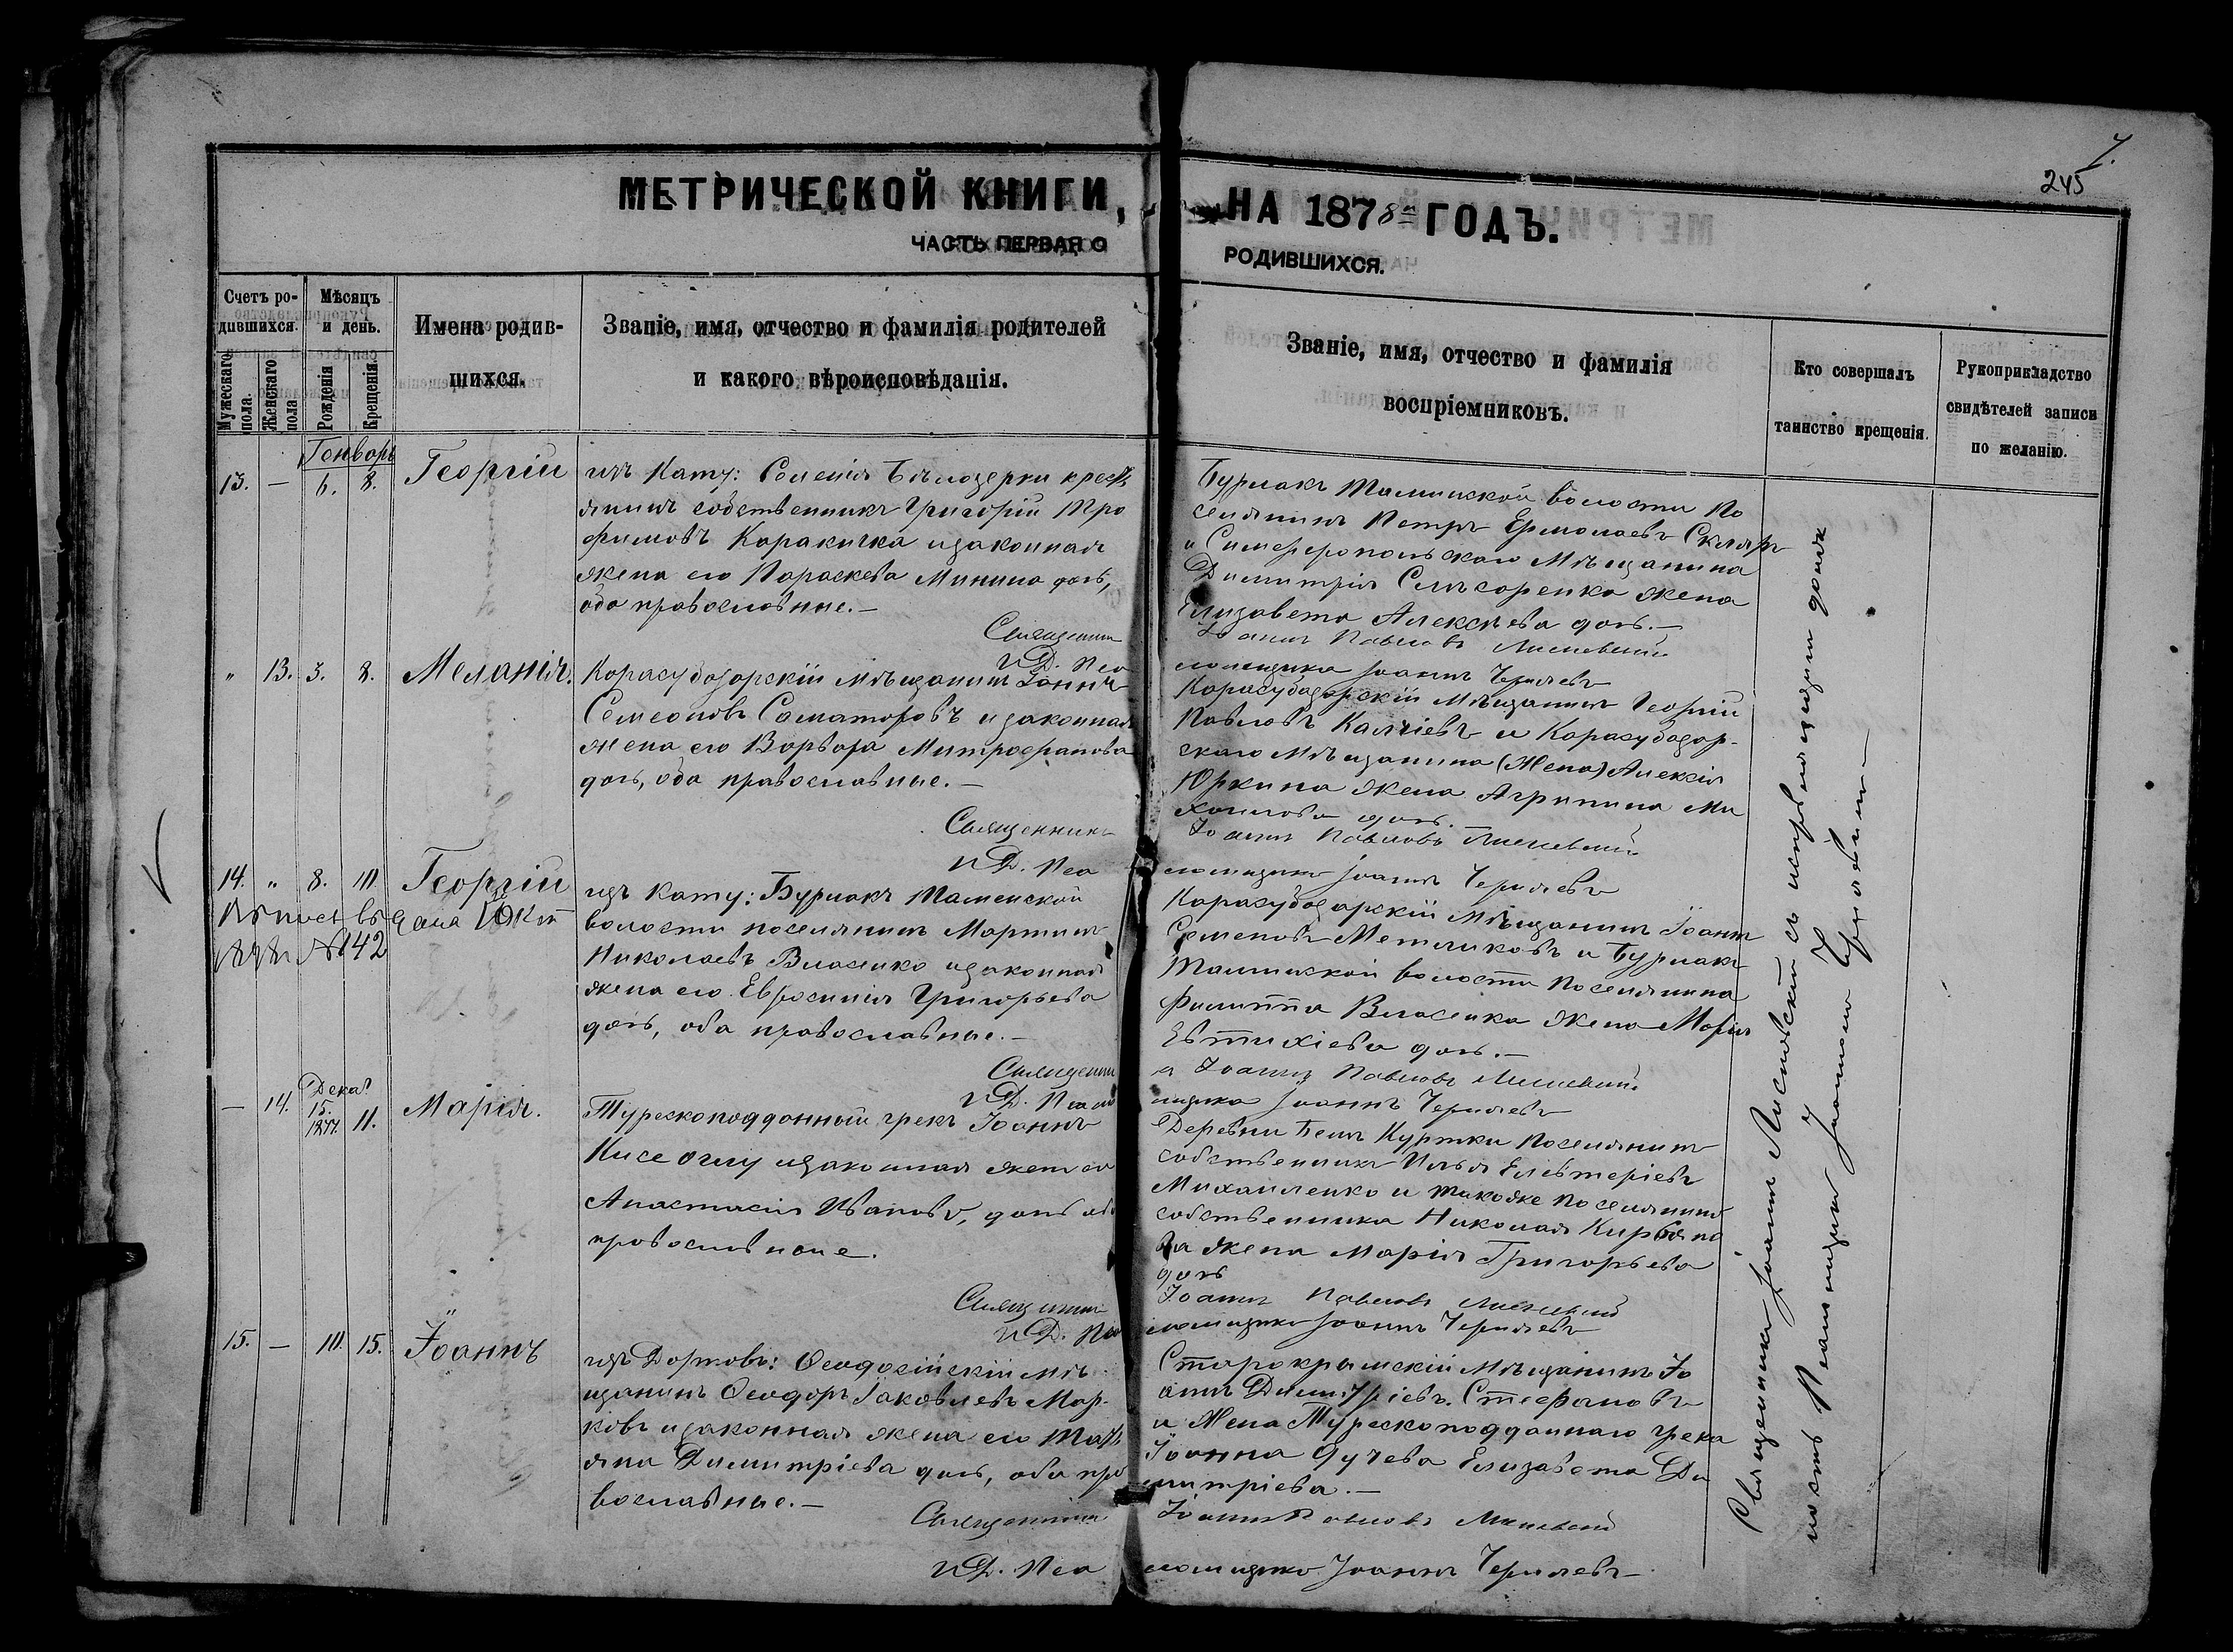 7.
245
МЕТРИЧЕСКОЙ КНИГИ, НА 1878й ГОДЪ.
ЧАСТЬ ПЕРВАЯ О РОДИВШИХСЯ.
Счетъ родившихся.
Мужескаго пола.
Женскаго пола
Мѣсяцъ и день.
Рожденія
Крещенія.
Имена родив-
шихся.
Званіе, имя, отчество и фамилія родителей
и какого вѣроисповѣданія.
Званіе, имя, отчество и фамилія
воспріемниковъ.
Кто совершалъ
таинство крещенія.
Рукоприкладство
свидѣтелей записи
по желанію.
Генворь
13. — 6. 8. Георгій
изъ Кату: Селенія Бѣлозерки крестъ
янинъ собственникъ Григорій Тро
фимовъ Каракичка изаконная
жена его Параскева Минина дочь,
оба православные.—
Бурлакъ Тамишской волости По
селянинъ Петръ Ермолаевъ Скляръ
и Симферопольскаго Мѣщанина
Димитрія Слѣсаренко жена
Елизавета Алексѣева дочь.—
Священникъ Іоаннъ Павловъ
И Д. Псаломщика Іоаннъ Черняевъ
" 13. 3. 8. Меланія.
Карасубазарскій мѣщанинъ Іоаннъ
Семеоновъ Саматоровъ изаконная
жена его Варвара Митрофанова
дочь, оба православные.—
Карасубазарскій Мѣщанинъ Георгій
Павловъ Калчіевъ и Карасубазар-
скаго Мѣщанина (Жена) Алексія
Юркина жена Агрипина Ми
хаилова дочь.
Священникъ Іоаннъ Павловъ
И Д. Псаломщика Іоаннъ Черняевъ
14. " 8. 10. Георгій
№ 142
изъ Кату: Бурлакъ Таменской
волости поселянинъ Мартинъ
Николаевъ Власенко изаконная
жена его Евфросинія Григорьева
дочь, оба православные.—
Карасубазарскій Мѣщанинъ Іоаннъ
Семеновъ Метликовъ и Бурлакъ
Тамишской волости Поселянина
Филиппа Власенка жена Марія
Евтихіева дочь.—
Священникъ Іоаннъ Павловъ
И Д. Псаломщика Іоаннъ Черняевъ
Декаб
— 14. 15. 1877. 11. Марія.
Турецкоподданный грекъ Іоаннъ
Кисе оглу изаконная жена его
Анастасія Иванова, дочь оба
православные.
Деревни Беш Куртки Поселянинъ
собственникъ Илья Елевтеріевъ
Михаиленко и такоже поселянина
собственника Николая Кирьяно
ва жена Марія Григорьева
дочь
Священникъ Іоаннъ Павловъ
И Д. Псаломщика Іоаннъ Черняевъ
15. — 10. 15. Іоаннъ
изъ Дортовъ: Ѳеодосійскій мѣ
щанинъ Ѳеодоръ Іаковлевъ Мар-
ковъ изаконная жена его Татъ
яна Димитріева дочь, оба пра
вославные.—
Старокрымскій Мѣщанинъ Іо
аннъ Димитріевъ Стефановъ
и Жена Турецкоподданнаго грека
Іоанна Дучева Елизавета Ди
митріева.—
Священникъ Іоаннъ Павловъ
И Д. Псаломщика Іоаннъ Черняевъ
Священникъ Іоаннъ съ исправляющимъ долж
ность Псаломщика Іоанномъ Черняевымъ—